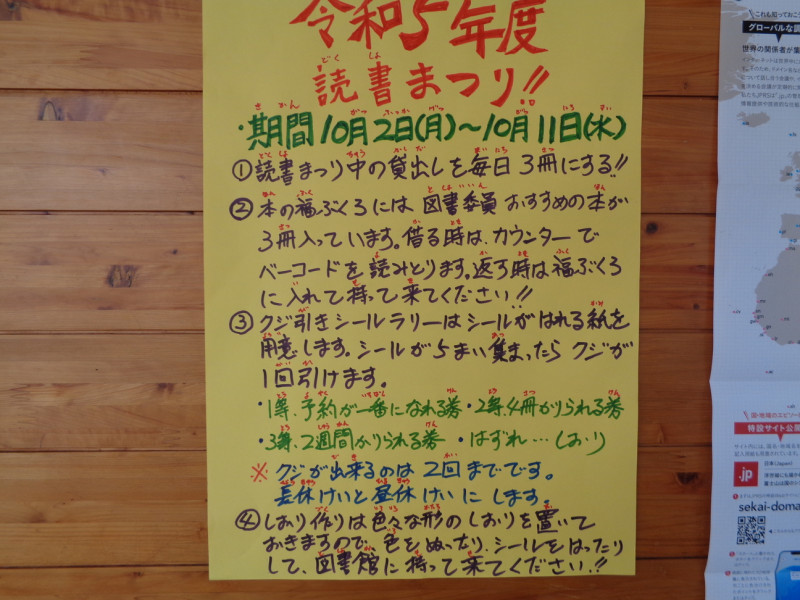 令和5年度
読書まつり!!
・期間10月2日(月)〜10月11日(水)
①読書まつり中の貸出しを毎日3冊にする!!
②本の福ぶくろには図書委員おすすめの本が
3冊入っています。借る時は、カウンターで
バーコードを読みとります。返す時は福ぶくろ
に入れて持って来てください!!
③クジ引きシールラリーはシールがはれる紙を
用意します。シールが5まい集まったらクジが
1回引けます。
・1等、予約が一番になれる券・2等、4冊かりられる券
・3等、2週間かりられる券・はずれ…しおり
※クジが出来るのは2回までです。
長休けいと昼休けいにします。
④しおり作りは色々な形のしおりを置いて
おきますので、色をぬったり、シールをはったり
して、図書館に持って来てください!!
これも知っておこう
グローバルな調
世界の関係者が集
国・地域のエピソー
特設サイト公
.jp
日本(Japan)
sekai-doma